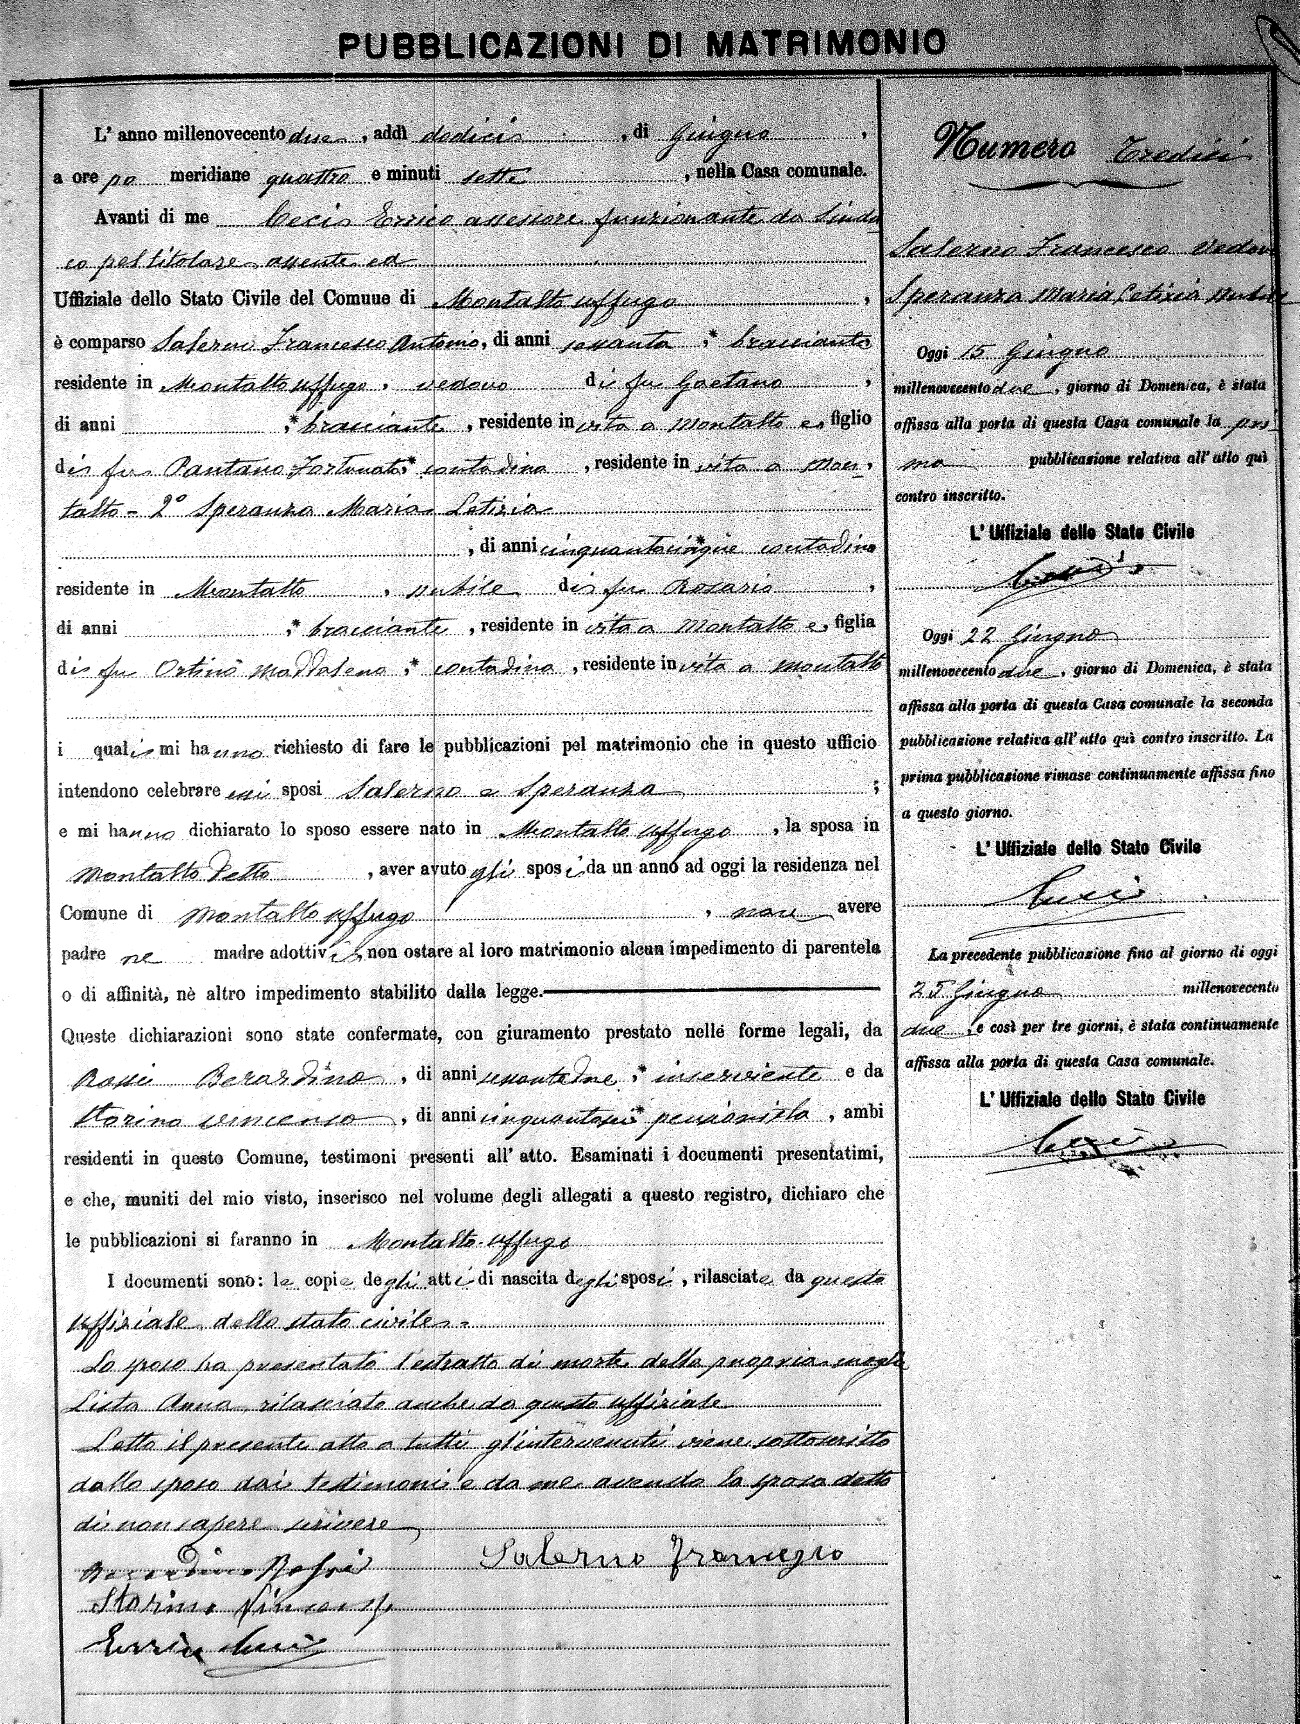 PUBBLICAZIONI DI MATRIMONIO
L' anno millenovecento due, addì dodici, di Giugno,
a ore po meridiane quattro e minuti sette, nella Casa comunale.
Avanti di me Ceci Errico assessore funzionante da Sinda-
co pel titolare assente ed
Uffiziale dello Stato Civile del Comune di Montalto Uffugo,
è comparso Salerno Francesco Antonio, di anni sessanta, * bracciante
residente in Montalto Uffugo, vedovo di fu Gaetano,
di anni , * bracciante, residente in vita a Montalto e, figlio
di fu Pantano Fortunata * contadina, residente in vita a Mon-
talto - 2° Speranza Maria Letizia
, di anni cinquantacinque * contadina
residente in Montalto, nubile di fu Rosario,
di anni , * bracciante, residente in vita a Montalto e, figlia
di fu Ortino Maddalena, * contadina, residente in vita a Montalto
i quali mi hanno richiesto di fare le pubblicazioni pel matrimonio che in questo ufficio
intendono celebrare essi sposi Salerno e Speranza ;
e mi hanno dichiarato lo sposo essere nato in Montalto Uffugo, la sposa in
Montalto detto, aver avuto gli sposi da un anno ad oggi la residenza nel
Comune di Montalto Uffugo, non avere
padre ne madre adottivi, non ostare al loro matrimonio alcun impedimento di parentela
o di affinità, nè altro impedimento stabilito dalla legge.
Queste dichiarazioni sono state confermate, con giuramento prestato nelle forme legali, da
Rossi Berardino, di anni sessantadue, * inserviente e da
Storino Vincenzo, di anni cinquantasei * pensionista, ambi
residenti in questo Comune, testimoni presenti all' atto. Esaminati i documenti presentatimi,
e che, muniti del mio visto, inserisco nel volume degli allegati a questo registro, dichiaro che
le pubblicazioni si faranno in Montalto Uffugo
I documenti sono: le copie degli atti di nascita degli sposi, rilasciate da questo
uffiziale dello stato civile.
Lo sposo ha presentato l'estratto di morte della propria moglie
Lista Anna rilasciato anche da questo uffiziale
Letto il presente atto a tutti gl'intervenuti viene sottoscritto
dallo sposo dai testimoni e da me avendo la sposa detto
di non sapere scrivere
Salerno Francesco
Berardino Rossi
Storino Vincenzo
Errico Ceci
Numero Tredici
Salerno Francesco vedovo
Speranza Maria Letizia nubile
Oggi 15 Giugno
millenovecento due, giorno di Domenica, è stata
affissa alla porta di questa Casa comunale la pri-
ma pubblicazione relativa all' atto quì
contro inscritto.
L' Uffiziale dello Stato Civile
Ceci
Oggi 22 Giugno
millenovecento due, giorno di Domenica, è stata
affissa alla porta di questa Casa comunale la seconda
pubblicazione relativa all' atto quì contro inscritto. La
prima pubblicazione rimase continuamente affissa fino
a questo giorno.
L' Uffiziale dello Stato Civile
Ceci
La precedente pubblicazione fino al giorno di oggi
25 Giugno millenovecento
due, e così per tre giorni, è stata continuamente
affissa alla porta di questa Casa comunale.
L' Uffiziale dello Stato Civile
Ceci